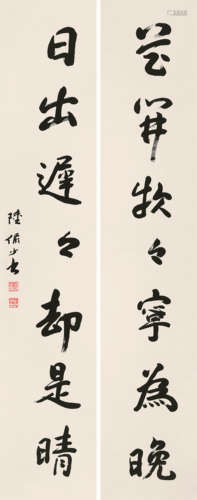 花開欵々寧為晚
日出遲々却是晴
陸儼少書